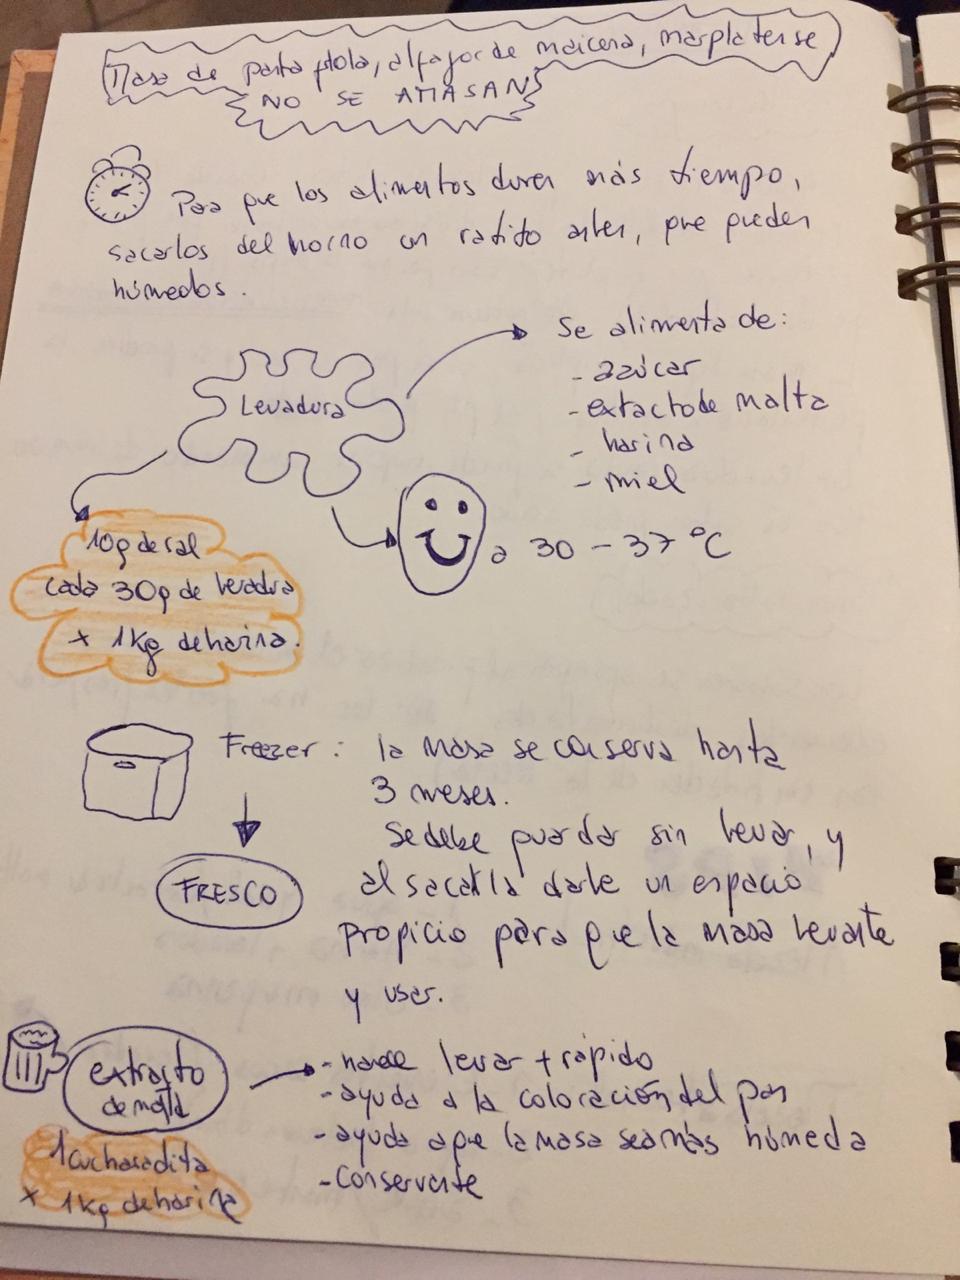 Masa de pasta frola, alfajor de maicena, marplatense
NO SE AMASAN
Para que los alimentos duren más tiempo,
sacarlos del horno un ratito antes, que queden
húmedos.
Levadura
Se alimenta de:
- azúcar
- extacto de malta
- harina
- miel
a 30 - 37 °C
10g de sal
cada 30g de levadura
x 1Kg de harina.
Freezer: la masa se conserva hasta
3 meses.
Se debe guardar sin levar, y
al sacarla darle un espacio
propicio para que la masa levante
y usar.
FRESCO
extracto
de malta
- hace levar + rápido
- ayuda a la coloración del pan
- ayuda a que la masa sea más húmeda
- conservante
1 cucharadita
x 1Kg de harina